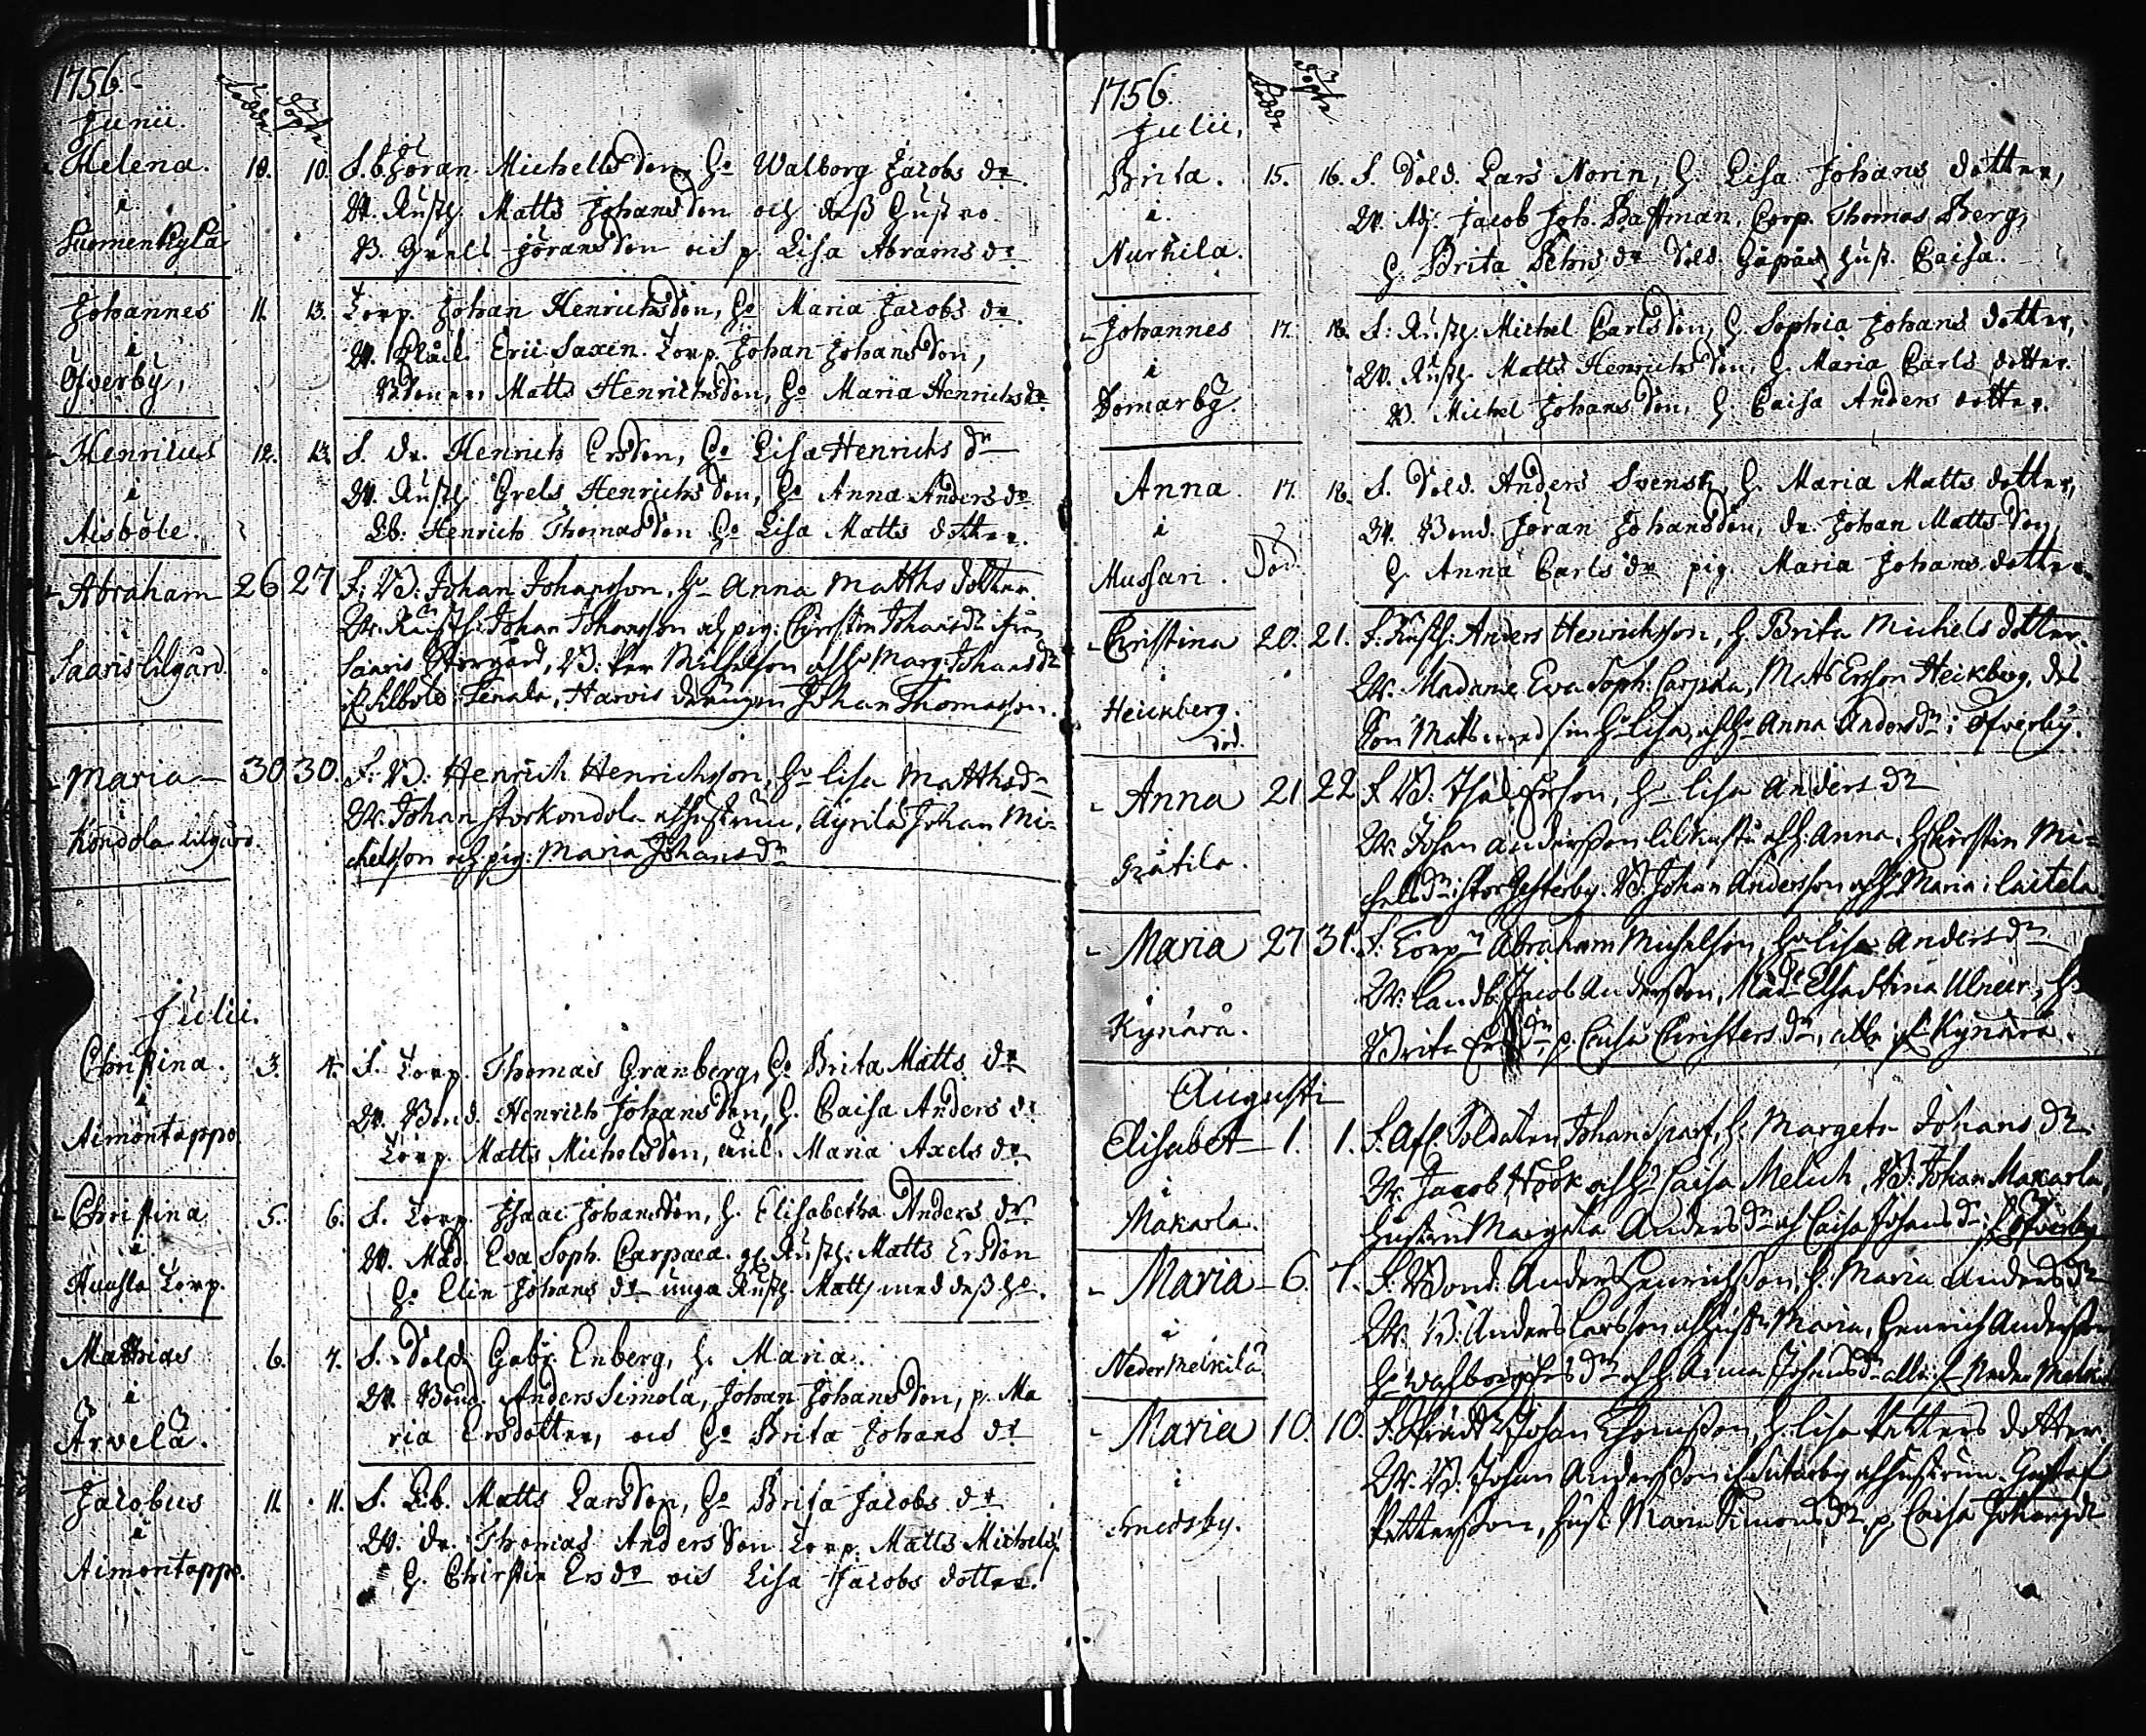 1756.
Junii.
födde döpte
Helena. 10. 10. F. b. Jöran Michelsson, H. Walborg Jacobs dr.
i W. Rusth. Matts Johansson och dess hustro
Suomenkylä B. Grels Jöransson och p. Lisa Abrams dr
Johannes 11. 13. Torp. Johan Henrichsson, H. Maria Jacobs dr.
i W. Erii Saxen. Torp. Johan Johansson,
Öfverby, Matts Henrichsson, H. Maria Henrichs dr.
Henricus 12. 13. F. Dr. Henrich Ersson, H. Lisa Henrichs dr
i W. Rusth. Grels Henrichsson, H. Anna Anders dr
Aisböle. Lb. Henrich Thomasson H. Lisa Matts dotter.
Abraham 26 27 F: B: Johan Johansson, H. Anna Matths dotter.
i W. Rusth: Johan Johansson och pig: Johans dr
Saaris lilgård. Saaris Storgård, B: Michelsson och H. Marg: Johans dr
Johan Thomasson.
Maria 30. 30. F: B: Henrich Henrichsson, H. Lisa Matthsdr
i W. Johan Storkondola och hustrun, Äyrilä Johan Mi=
Kondola lilgård. chelsson och pig: Maria Johans dr
Julii.
Christina. 3. 4. F. Torp. Thomas Granberg, H. Brita Matts dr
i W. Bond. Henrich Johansson, H. Caisa Anders dr
Aimontappo. Torp. Matts Michelsson, Maria Axels dr
Christina 5. 6. F. Torp. Isaac Johansson, H. Elisabetha Anders dr.
i W. Mad. Eva Soph. Carpaea. gl. Rusth. Matts Ersson
Torp. H. Elin Johans dr unga Rusth. Matts med dess H.
Matthias 6. 7. F. Sold. Gabr. Enberg, H. Maria.
i W. Bond. Anders Simola, Johan Johansson, p. Ma
Ärvelä. ria Ersdotter, och H. Brita Johans dr
Jacobus 11. 11. F. Lb. Matts Larsson, H. Brita Jacobs dr
i W. Dr. Thomas Andersson Torp. Matts Michels.
Aimontappo. H. Christin Ers dr och Lisa Jacobs dotter.
1756.
Julii,
födde döpte
Brita. 15. 16. F. Sold. Lars Norin, H. Lisa Johans dotter,
i. W. Adj. Jacob Joh. Corp. Thomas Berg,
Nurkila. H. Brita dr Sold. hust. Caisa.
Johannes 17. 18. F: Rusth. Michel Carlsson, H. Sophia Johans dotter,
i W. Rusth. Matts Henrichsson, H. Maria Carls dotter.
Domarby. B. Michel Johansson, H. Caisa Anders dotter.
Anna 17. 18. F. Sold. Anders Svensk, H. Maria Matts dotter,
i W. Bond. Jöran Johansson, Dr. Johan Mattsson,
Mussari. Död H. Anna Carls dr pig. Maria Johans dotter.
Christina 20. 21. F. Rusth: Anders Henrichsson, H. Brita Michels dotter.
i W. Madame Eva Soph: Carpaea, Matts Ersson Heickberg, des
Heickberg. Son Matts med sin H. Lisa, och H. Anna Anders dr i Öfverby.
död.
Anna 21 22 F B: Ersson, H. Lisa Anders dr
i W. Johan Andersson och H. Anna, H. Kirstin Mi=
Gråtila. chels dr B. Johan Andersson och H. Maria i Laitela
Maria 27 31. F. Torp. Abraham Michelsson, H. Lisa Anders dr
i W. Landb. Jacob Andersson, Mad. Elsa Stina H.
Kynärä. Brita dr, p. Caisa Christers dr, alla if. Kynärä.
Augusti
Elisabet 1. 1. F. Afsk. Soldaten Johan Sparf, H. Margeta Johans dr
i W. Jacob Höök och H. Caisa Melich, B. Johan Makarla,
Makarla. hustru Margeta Anders dr och Caisa Johans dr if. Öfverby
Maria 6. 7. F. Bond. Anders Henrichsson, H. Maria Anders dr
i W. B. Anders Larsson och hust: Maria, Henrich Andersson
Neder Melkilä H. Walborg dr och H. Anna Johans dr alla if Neder Melkilä
Maria 10. 10. F. Johan Thomasson, H. Lisa Petters dotter.
i W. B. Johan Andersson if. Sutarby och hustrun. Gustaf
Smedsby. Pettersson, hust. Maria Simons dr, p. Caisa Johans dr